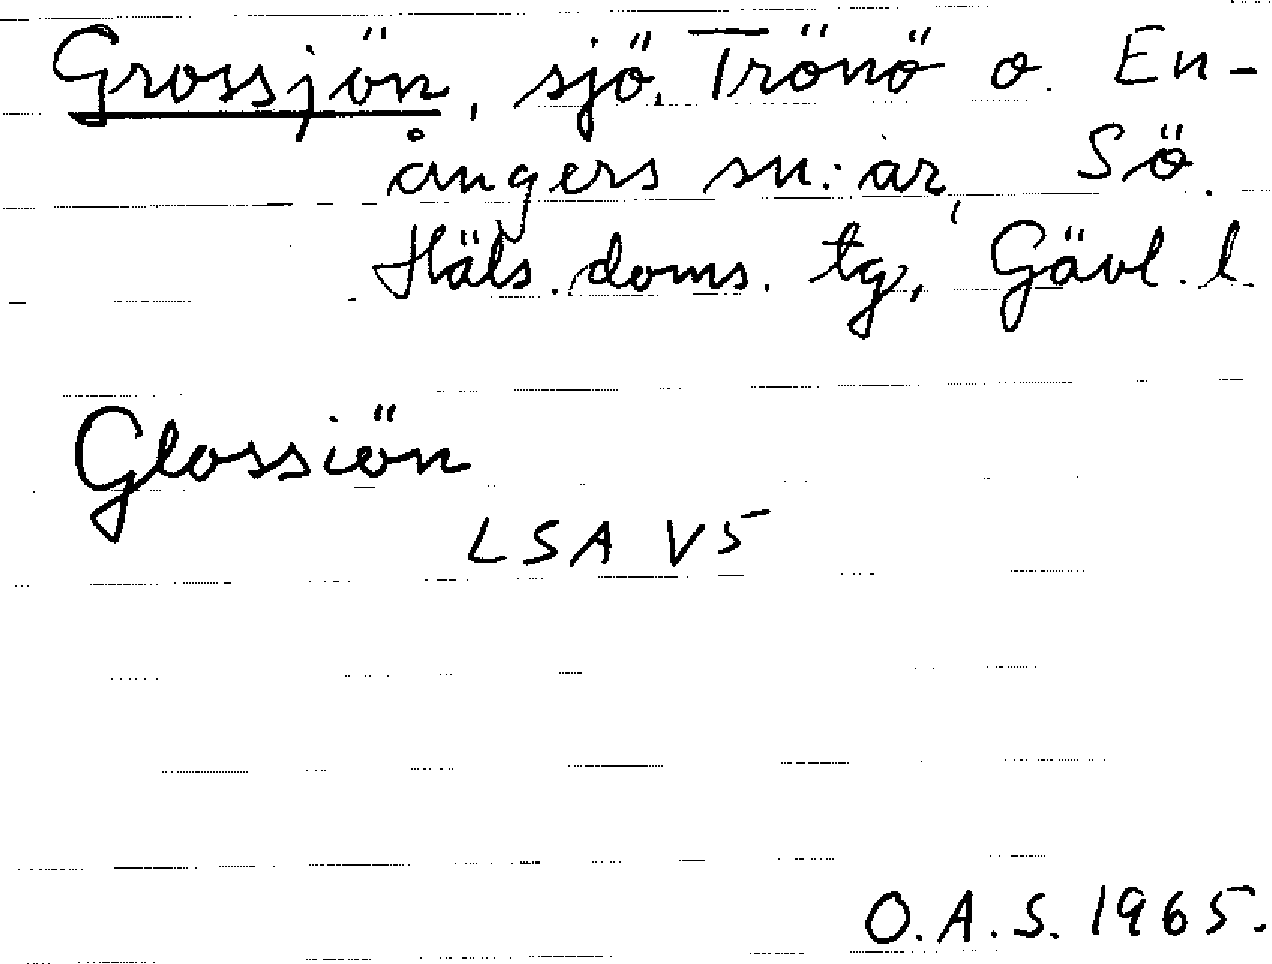 Grossjön, sjö, Trönö o. En-
ångers sn:ar, Sö.
Häls. doms. tg, Gävl. l.
Glossiön
LSA V5
O.A.S. 1965.